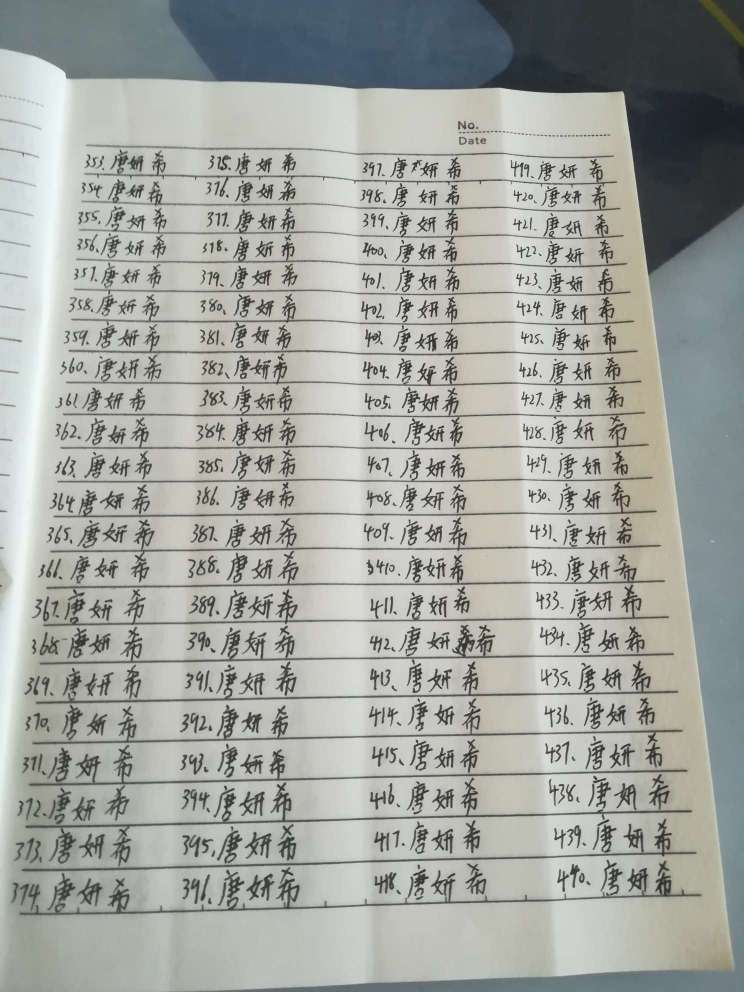 No.
Date
353.唐妍希 375.唐妍希 397.唐妍希 419.唐妍希
354.唐妍希 376.唐妍希 398.唐妍希 420.唐妍希
355.唐妍希 377.唐妍希 399.唐妍希 421.唐妍希
356.唐妍希 378.唐妍希 400.唐妍希 422.唐妍希
357.唐妍希 379.唐妍希 401.唐妍希 423.唐妍希
358.唐妍希 380.唐妍希 402.唐妍希 424.唐妍希
359.唐妍希 381.唐妍希 403.唐妍希 425.唐妍希
360、唐妍希 382、唐妍希 404.唐妍希 426.唐妍希
361唐妍希 383.唐妍希 405.唐妍希 427.唐妍希
362.唐妍希 384.唐妍希 406.唐妍希 428.唐妍希
363.唐妍希 385.唐妍希 407.唐妍希 429.唐妍希
364.唐妍希 386.唐妍希 408.唐妍希 430.唐妍希
365.唐妍希 387.唐妍希 409.唐妍希 431.唐妍希
366.唐妍希 388.唐妍希 410.唐妍希 432.唐妍希
367.唐妍希 389.唐妍希 411.唐妍希 433.唐妍希
368唐妍希 390.唐妍希 412、唐妍希 434.唐妍希
369.唐妍希 391.唐妍希 413、唐妍希 435.唐妍希
370.唐妍希 392.唐妍希 414、唐妍希 436.唐妍希
371、唐妍希 393、唐妍希 415、唐妍希 437.唐妍希
372.唐妍希 394.唐妍希 416、唐妍希 438、唐妍希
373.唐妍希 395.唐妍希 417.唐妍希 439.唐妍希
374.唐妍希 396.唐妍希 418.唐妍希 440、唐妍希